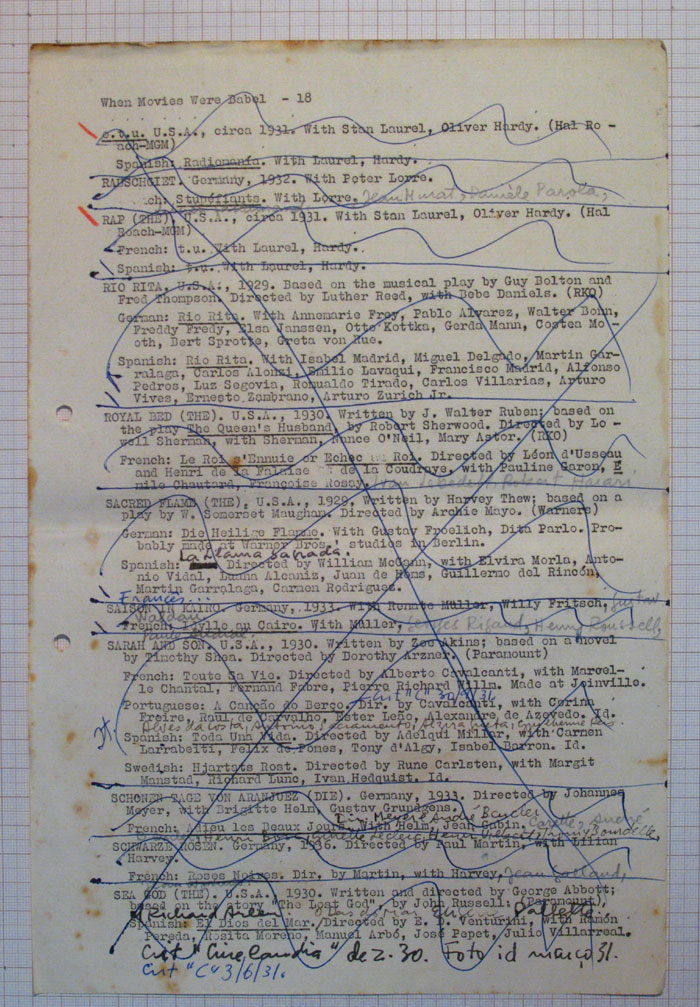 When Movies Were Babel - 18
o.t.u. U.S.A., circa 1931. With Stan Laurel, Oliver Hardy. (Hal Ro -
ach-MGM)
Spanish: Radiomanía. With Laurel, Hardy.
RAUSCHGIFT. Germany, 1932. With Peter Lorre.
ch: Stupéfiants. With Lorre. Jean Murat, Danièle Parola,
RAP (THE). U.S.A., circa 1931. With Stan Laurel, Oliver Hardy. (Hal
Roach-MGM)
French: t.u. With Laurel, Hardy.
Spanish: t.u. With Laurel, Hardy.
RIO RITA. U.S.A., 1929. Based on the musical play by Guy Bolton and
Fred Thompson. Directed by Luther Reed, with Bebe Daniels. (RKO)
German: Rio Rita. With Annemarie Frey, Pablo Alvarez, Walter Bonn,
Freddy Fredy, Elsa Janssen, Otto Kottka, Gerda Mann, Costea Mo-
oth, Bert Sprotte, Greta von Rue.
Spanish: Rio Rita. With Isabel Madrid, Miguel Delgado, Martin Gar-
ralaga, Carlos Alonzi, Emilio Lavaqui, Francisco Madrid, Alfonso
Pedros, Luz Segovia, Romualdo Tirado, Carlos Villarias, Arturo
Vives, Ernesto Zambrano, Arturo Zurich Jr.
ROYAL BED (THE). U.S.A., 1930. Written by J. Walter Ruben; based on
the play The Queen's Husband, by Robert Sherwood. Directed by Lo -
well Sherman, with Sherman, Nance O'Neil, Mary Astor. (RKO)
French: Le Roi s'Ennuie or Echec au Roi. Directed by Léon d'Usseau
and Henri de la Falaise de la Coudraye, with Pauline Garon, E
mile Chautard, Françoise Rosay,
SACRED FLAME (THE). U.S.A., 1929. Written by Harvey Thew; based on a
play by W. Somerset Maugham. Directed by Archie Mayo. (Warners)
German: Die Heilige Flamme. With Gustav Froelich, Dita Parlo. Pro-
bably made at Warner Bros.' studies in Berlin.
La Llama Sagrada.
Spanish: Directed by William McGann, with Elvira Morla, Anto-
nio Vidal, Luana Alcaniz, Juan de Homs, Guillermo del Rincón,
Martin Garralaga, Carmen Rodriguez.
Frances...
SAISON IN KAIRO. Germany, 1933. With Renate Muller, Willy Fritsch, Gustav
Waldau
French: Idylle au Caire. With Muller, Georges Rigaud, Henry Roussell,
SARAH AND SON. U.S.A., 1930. Written by Zoe Akins; based on a novel
by Timothy Shea. Directed by Dorothy Arzner. (Paramount)
French: Toute Sa Vie. Directed by Alberto Cavalcanti, with Marcel-
le Chantal, Fernand Fabre, Pierre Richard Willm. Made at Joinville.
Portuguese: A Canção do Berço. Dir. by Cavalcanti, with Corina
Freire, Raul de Carvalho, Ester Leão, Alexandre de Azevedo. Id.
Spanish: Toda Una Vida. Directed by Adelqui Millar, with Carmen
Larrabeiti, Felix de Pomes, Tony d'Algy, Isabel Barron. Id.
Swedish: Hjartats Rost. Directed by Rune Carlsten, with Margit
Manstad, Richard Lund, Ivan Hedquist. Id.
SCHONEN TAGE VON ARANJUEZ (DIE). Germany, 1933. Directed by Johannes
Meyer, with Brigitte Helm, Gustav Grundgens.
Dir. Meyer e André Beucler
French: Adieu les Beaux Jours. With Helm, Jean Gabin. Carette,
SCHWARZE ROSEN. Germany, 1936. Directed by Paul Martin, with Lilian
Harvey.
French: Roses Noires. Dir. by Martin, with Harvey, Jean Galland,
SEA GOD (THE). U.S.A. 1930. Written and directed by George Abbott;
based on the story "The Lost God", by John Russell. (Paramount)
Richard Arlen Pallette
Spanish: El Dios del Mar. Directed by E. D. Venturini, with Ramón
Pereda, Rosita Moreno, Manuel Arbó, José Pepet, Julio Villarreal.
Crit "Cinelandia" dez. 30. Foto id março 31.
Crit "C" 3/6/31.